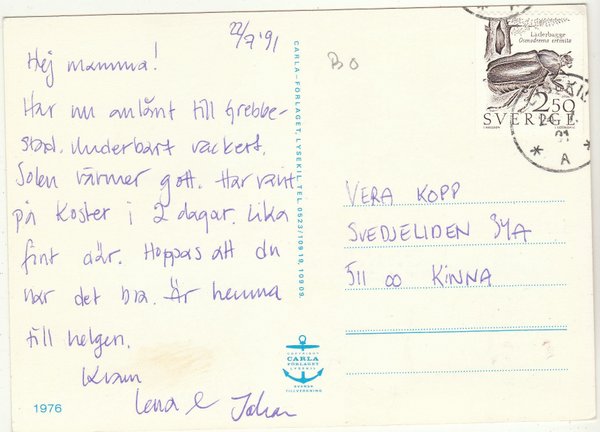 22/7 '91
Hej mamma!
Har nu anlänt till Grebbe-
stad. Underbart vackert.
Solen värmer gott. Har varit
på Koster i 2 dagar. Lika
fint där. Hoppas att du
har det bra. Är hemma
till helgen.
Kram
Lena & Johan
1976
CARLA-FÖRLAGET, LYSEKIL TEL. 0523/10919, 10909
COPYRIGHT
CARLA
FÖRLAGET
LYSEKIL
SVENSK
TILLVERKNING
BO
Läderbagge
Osmoderma eremita
2.50
SVERIGE
A
VERA KOPP
SVEDJELIDEN 34A
511 00 KINNA